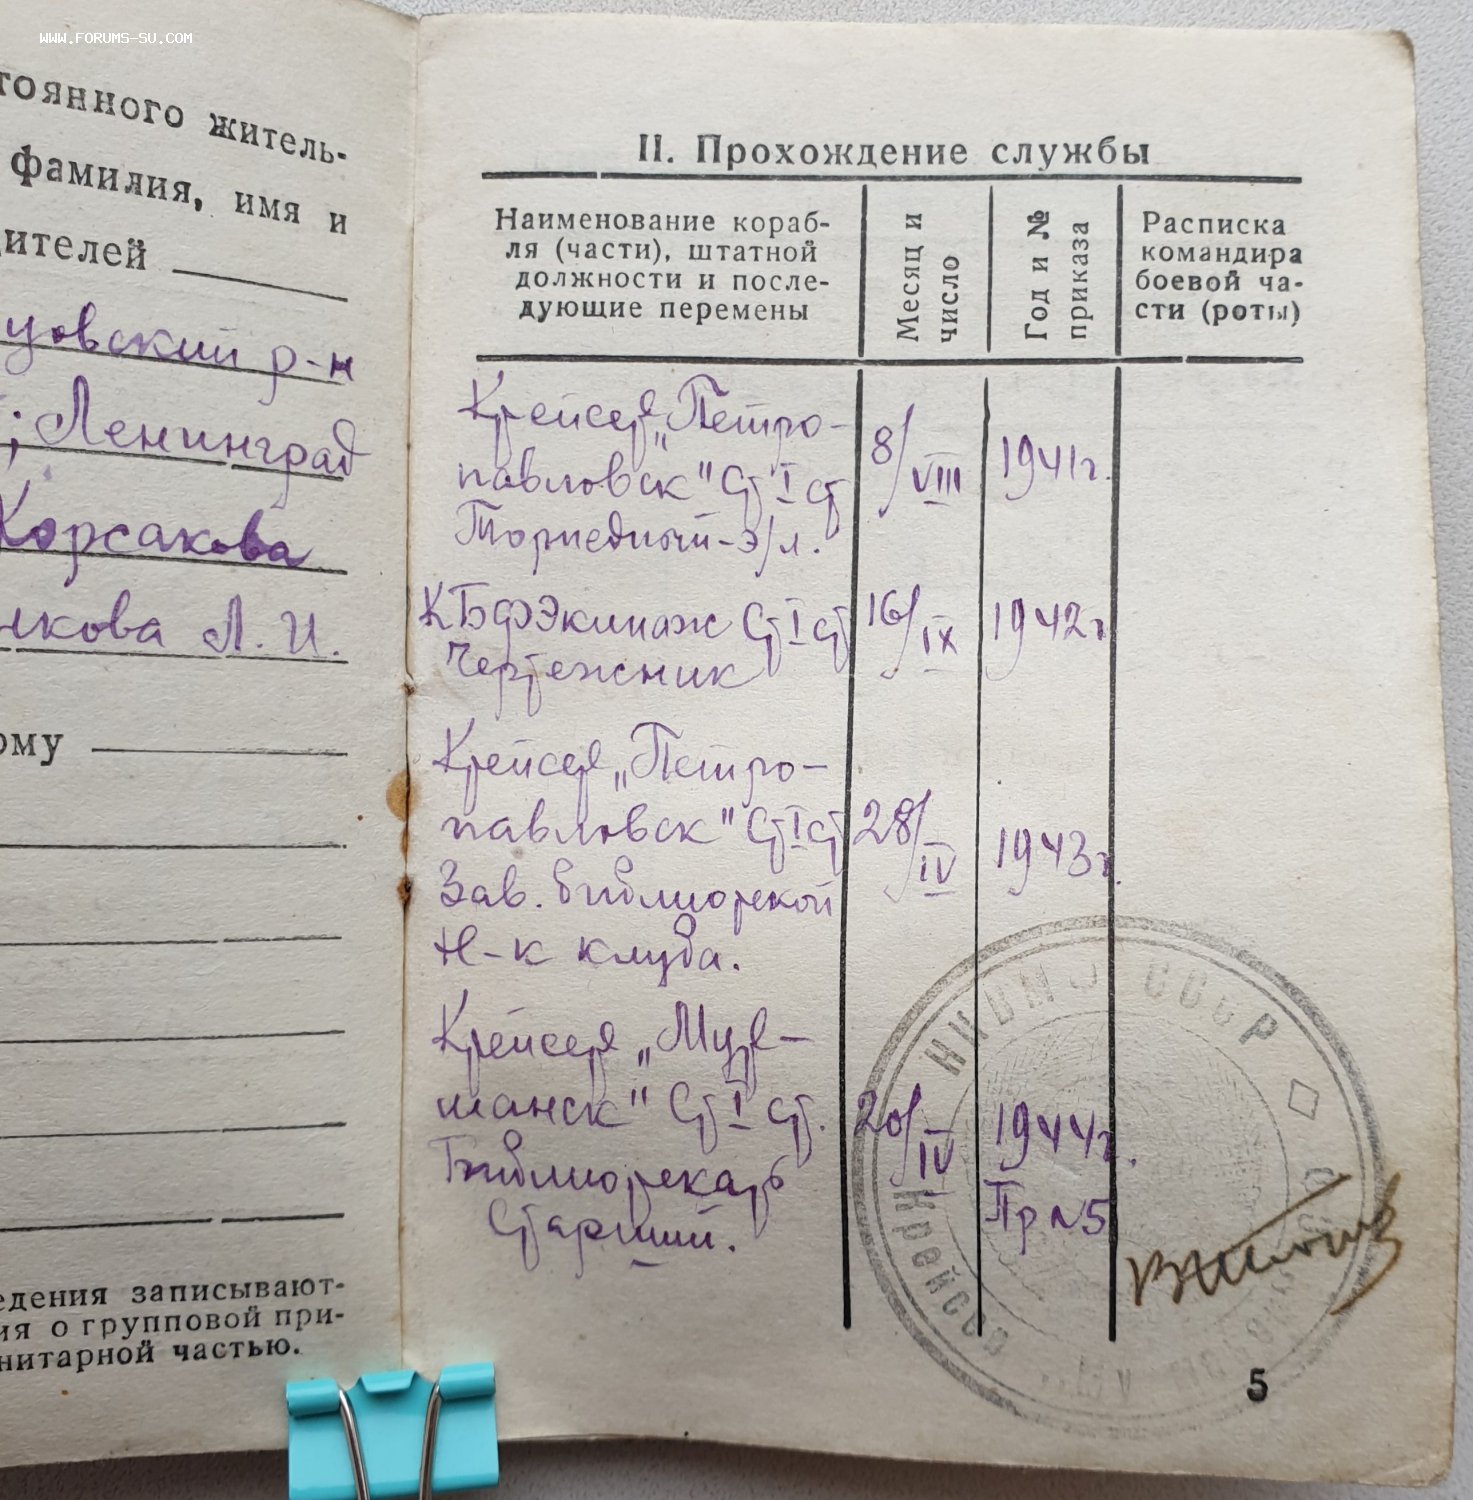 WWW.FORUMS-SU.COM
тоянного житель-
фамилия, имя и
дителей
цовский р-н
; Ленинград
Корсакова
лкова Л. И.
ому
едения записывают-
ия о групповой при-
нитарной частью.
II. Прохождение службы
Наименование кораб-
ля (части), штатной
должности и после-
дующие перемены
Месяц и
число
Год и №
приказа
Расписка
командира
боевой ча-
сти (роты)
Крейсер „Петро-
павловск" Ст I ст 8/VIII 1941г.
Торпедный-э/л.
КБФ Экипаж Ст I ст 16/IX 1942г
Чертежник
Крейсер „Петро-
павловск" Ст I ст 28/IV 1943г.
Зав. библиотекой
Н-к клуба.
Крейсер „Мур-
манск" Ст I ст. 20/IV 1944г.
Библиотекарь Пр №5
Старший.
НКВМФ СССР
Крейсер
5